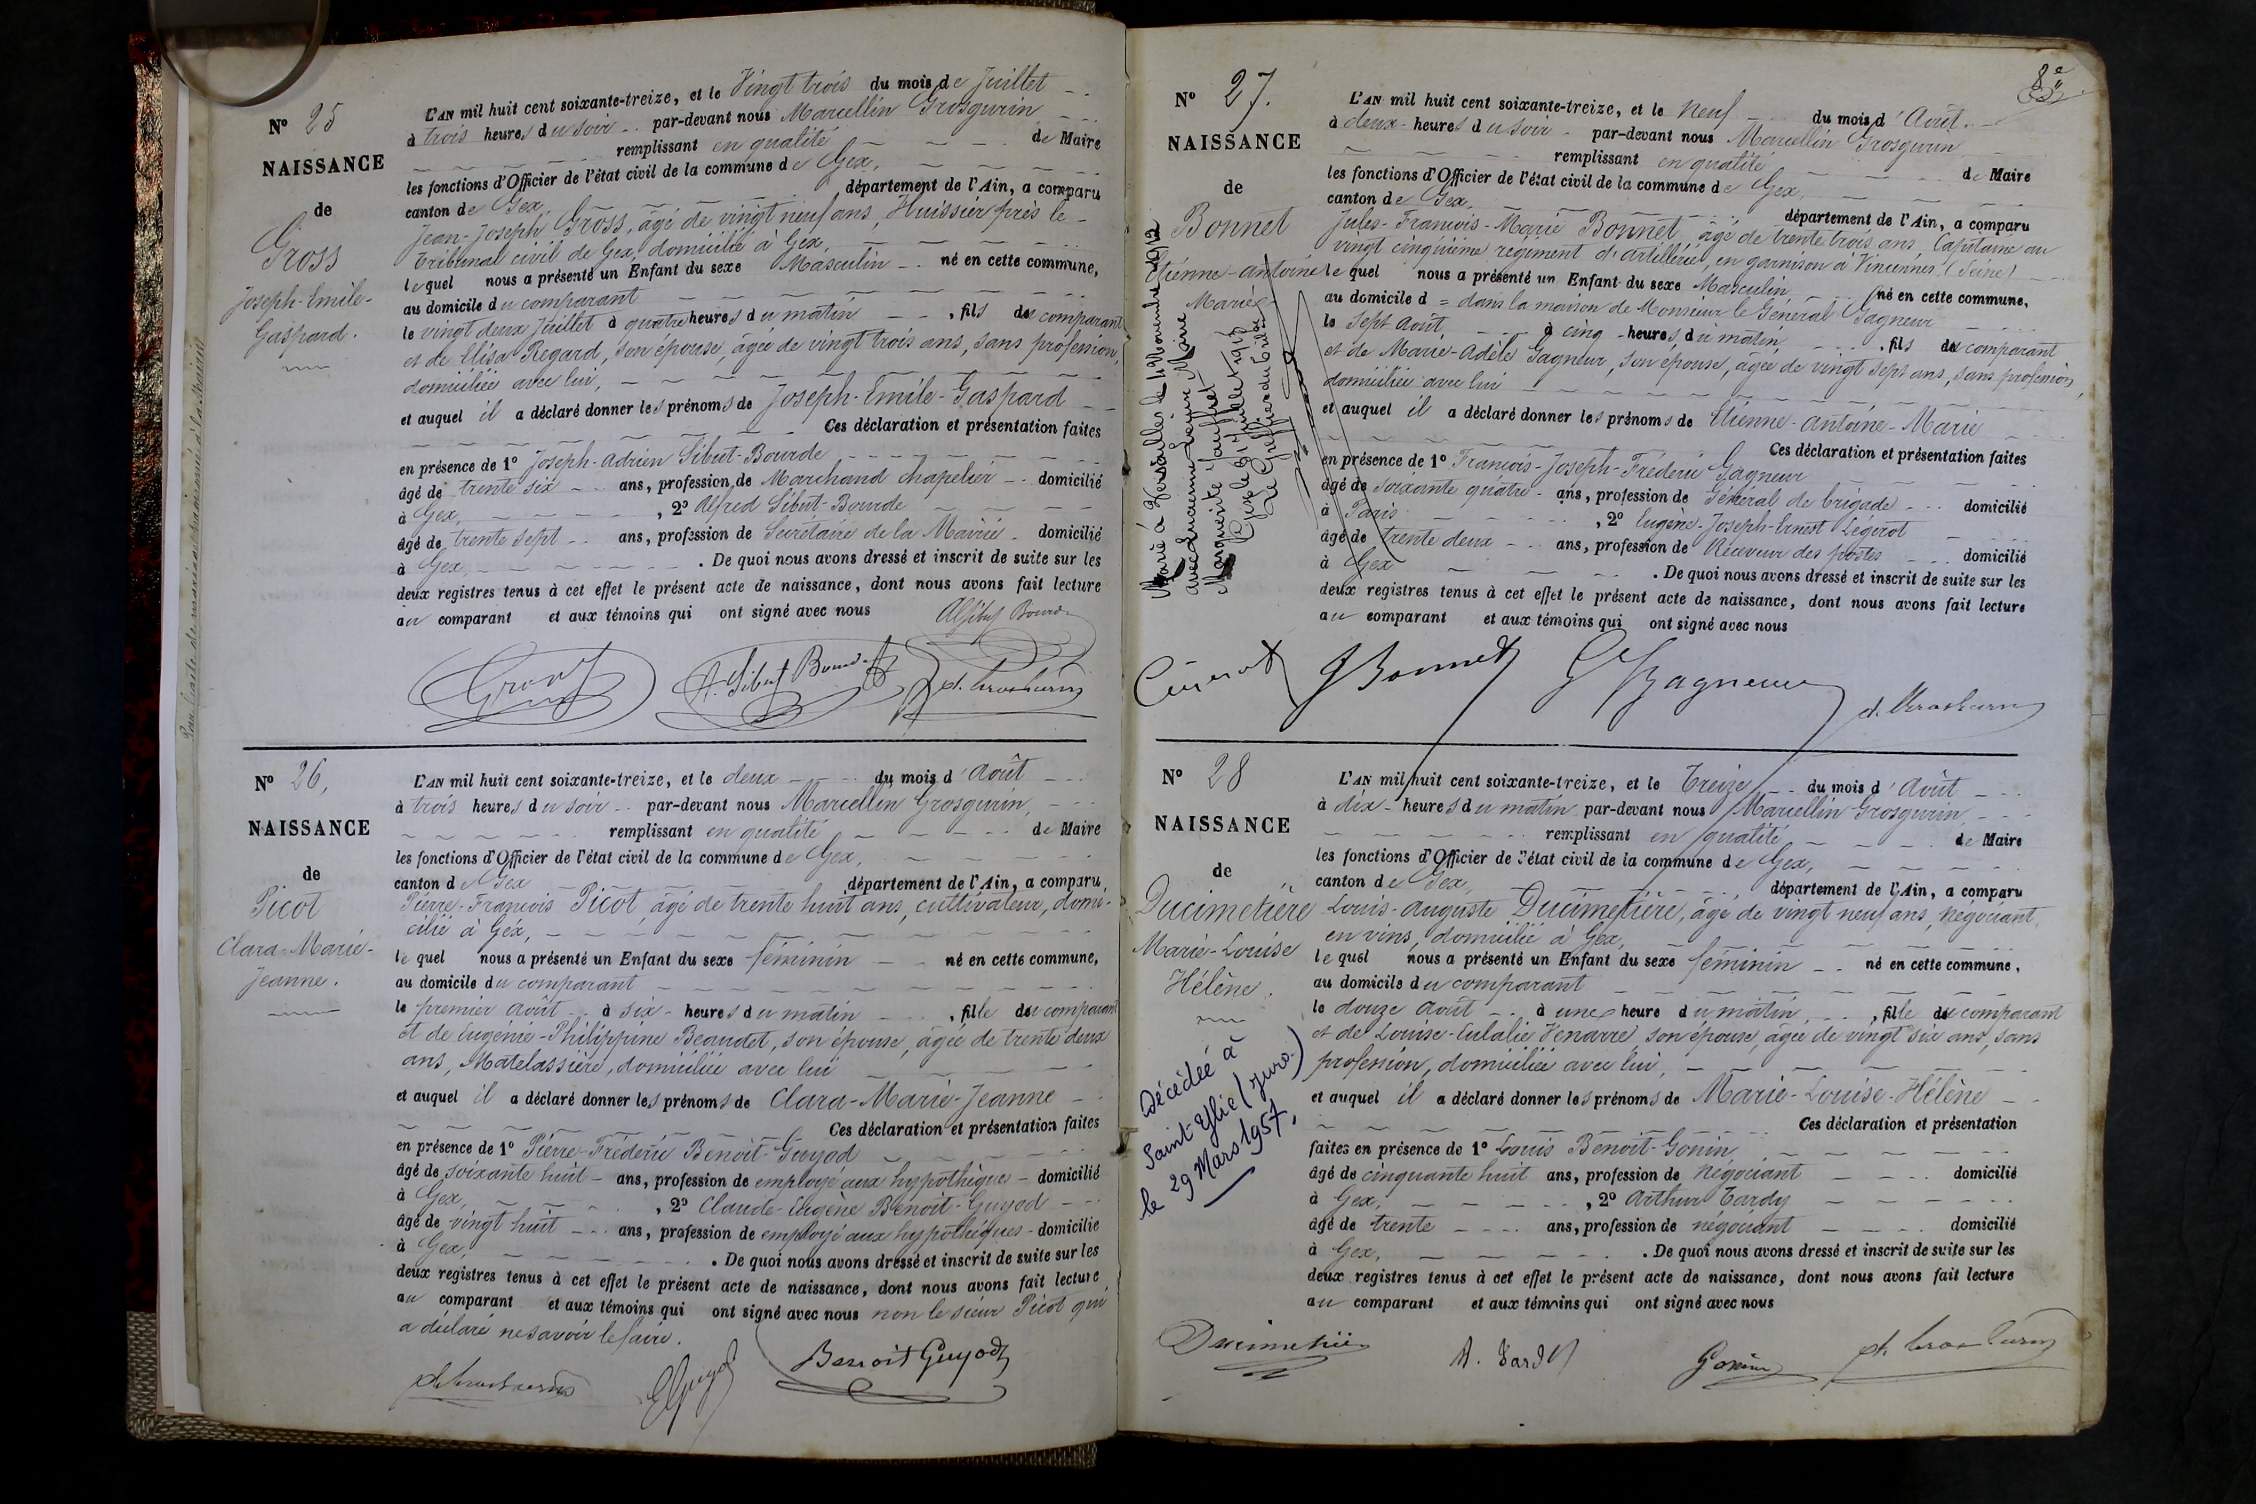 N° 25
NAISSANCE
de
Gross
Joseph-Emile-
Gaspard.
L'AN mil huit cent soixante-treize, et le Vingt trois du mois de Juillet
à trois heures du soir par-devant nous Marcellin Grosgurin
remplissant en qualité de Maire
les fonctions d'Officier de l'état civil de la commune de Gex,
canton de Gex, département de l'Ain, a comparu
Jean-Joseph Gross, âgé de vingt neuf ans, Huissier près le
Tribunal civil de Gex, domicilié à Gex,
lequel nous a présenté un Enfant du sexe Masculin né en cette commune,
au domicile du comparant
le vingt deux Juillet à quatre heures du matin, fils du comparant
et de Elisa Regard, son épouse, âgée de vingt trois ans, sans profession,
domiciliée avec lui,
et auquel il a déclaré donner les prénoms de Joseph-Emile-Gaspard
Ces déclaration et présentation faites
en présence de 1° Joseph-Adrien Sibut-Bourde
âgé de trente six ans, profession de Marchand chapelier domicilié
à Gex, 2° Alfred Sibut-Bourde
âgé de trente sept ans, profession de Secrétaire de la Mairie domicilié
à Gex. De quoi nous avons dressé et inscrit de suite sur les
deux registres tenus à cet effet le présent acte de naissance, dont nous avons fait lecture
au comparant et aux témoins qui ont signé avec nous
N° 26,
NAISSANCE
de
Picot
Clara-Marie-
Jeanne.
L'AN mil huit cent soixante-treize, et le deux du mois d'Août
à trois heures du soir par-devant nous Marcellin Grosgurin,
remplissant en qualité de Maire
les fonctions d'Officier de l'état civil de la commune de Gex,
canton de Gex département de l'Ain, a comparu
Pierre-François Picot, âgé de trente huit ans, cultivateur, domi-
cilié à Gex,
lequel nous a présenté un Enfant du sexe féminin né en cette commune,
au domicile du comparant
le premier août à six heures du matin, fille du comparant
et de Eugénie-Philippine Beaudet, son épouse, âgée de trente deux
ans, Matelassière, domiciliée avec lui
et auquel il a déclaré donner les prénoms de Clara-Marie-Jeanne
Ces déclaration et présentation faites
en présence de 1° Pierre-Fréderic Benoit-Guyod
âgé de soixante huit ans, profession de employé aux hypothèques domicilié
à Gex, 2° Claude-Eugène Benoit-Guyod
âgé de vingt huit ans, profession de employé aux hypothèques domicilié
à Gex, . De quoi nous avons dressé et inscrit de suite sur les
deux registres tenus à cet effet le présent acte de naissance, dont nous avons fait lecture
au comparant et aux témoins qui ont signé avec nous non le sieur Picot qui
a déclaré ne savoir le faire.
Benoit Guyod
N° 27.
NAISSANCE
de
Bonnet
Etienne-Antoine
Marie
Marié à Versailles le 4 Novembre 1912
Marguerite
Gex le 31 Juillet 1913
Le Greffier du Tribal
L'AN mil huit cent soixante-treize, et le neuf du mois d'Août.
à deux heures du soir par-devant nous Marcellin Grosgurin
remplissant en qualité de Maire
les fonctions d'Officier de l'état civil de la commune de Gex
canton de Gex, département de l'Ain, a comparu
Jules-François-Marie Bonnet, âgé de trente trois ans, Capitaine au
vingt cinquième régiment d'artillerie, en garnison à Vincennes (Seine)
lequel nous a présenté un Enfant du sexe Masculin né en cette commune,
au domicile d = dans la maison de Monsieur le Général Gagneur
le sept août à cinq heures du matin, fils du comparant
et de Marie-Adèle Gagneur, son épouse, âgée de vingt sept ans, sans profession,
domiciliée avec lui
et auquel il a déclaré donner les prénoms de Etienne-Antoine-Marie
Ces déclaration et présentation faites
en présence de 1° François-Joseph-Fréderic Gagneur
âgé de soixante quatre ans, profession de Général de brigade domicilié
à Paris, 2° Eugène-Joseph-Ernest Légerot
âgé de trente deux ans, profession de Receveur des postes domicilié
à Gex. De quoi nous avons dressé et inscrit de suite sur les
deux registres tenus à cet effet le présent acte de naissance, dont nous avons fait lecture
au comparant et aux témoins qui ont signé avec nous
J Bonnet
Gagneur
N° 28
NAISSANCE
de
Ducimetière
Marie-Louise
Hélène.
Décédée à
Saint-Ylie (Jura.)
le 29 Mars 1957.
L'AN mil huit cent soixante-treize, et le Treize du mois d'Août
à dix heures du matin par-devant nous Marcellin Grosgurin
remplissant en qualité de Maire
les fonctions d'Officier de l'état civil de la commune de Gex,
canton de Gex, département de l'Ain, a comparu
Louis-Auguste Ducimetière, âgé de vingt neuf ans, négociant
en vins, domicilié à Gex,
lequel nous a présenté un Enfant du sexe féminin né en cette commune,
au domicile du comparant
le douze Août à une heure du matin, fille du comparant
et de Louise-Eulalie Venarre son épouse, âgée de vingt six ans, sans
profession, domiciliée avec lui,
et auquel il a déclaré donner les prénoms de Marie-Louise-Hélène
Ces déclaration et présentation
faites en présence de 1° Louis Benoit-Gonin
âgé de cinquante huit ans, profession de négociant domicilié
à Gex, 2° Arthur Tardy
âgé de trente ans, profession de négociant domicilié
à Gex, . De quoi nous avons dressé et inscrit de suite sur les
deux registres tenus à cet effet le présent acte de naissance, dont nous avons fait lecture
au comparant et aux témoins qui ont signé avec nous
Ducimetière
A. Tardy
Gonin